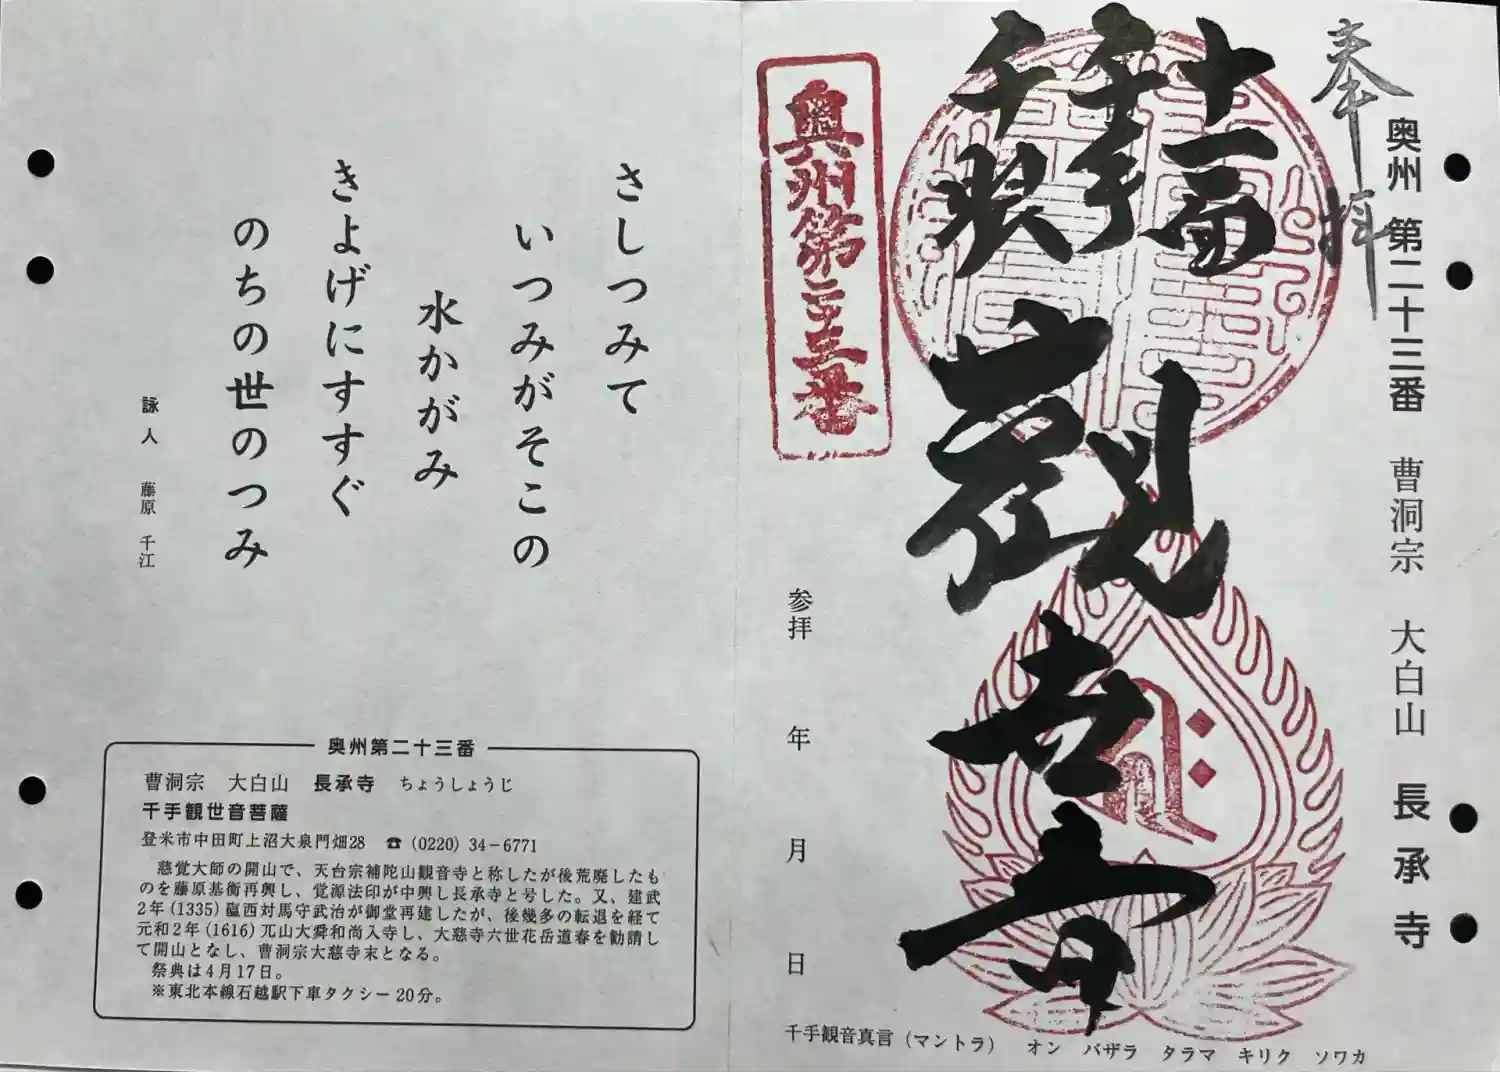 奉拝
奥州 第二十三番 曹洞宗 大白山 長承寺
十一面
千手
千眼
観世音
奥州第二十三番
参拝 年 月 日
千手観音真言（マントラ） オン バザラ タラマ キリク ソワカ
さしつみて
いつみがそこの
水かがみ
きよげにすすぐ
のちの世のつみ
詠人 藤原 千江
奥州第二十三番
曹洞宗 大白山 長承寺 ちょうしょうじ
千手観世音菩薩
登米市中田町上沼大泉門畑28 ☎ (0220) 34−6771
慈覚大師の開山で、天台宗補陀山観音寺と称したが後荒廃したも
のを藤原基衡再興し、覚源法印が中興し長承寺と号した。又、建武
2年(1335)西対馬守武治が御堂再建したが、後幾多の転退を経て
元和2年(1616)兀山大舜和尚入寺し、大慈寺六世花岳道春を勧請し
て開山となし、曹洞宗大慈寺末となる。
祭典は4月17日。
※東北本線石越駅下車タクシー20分。